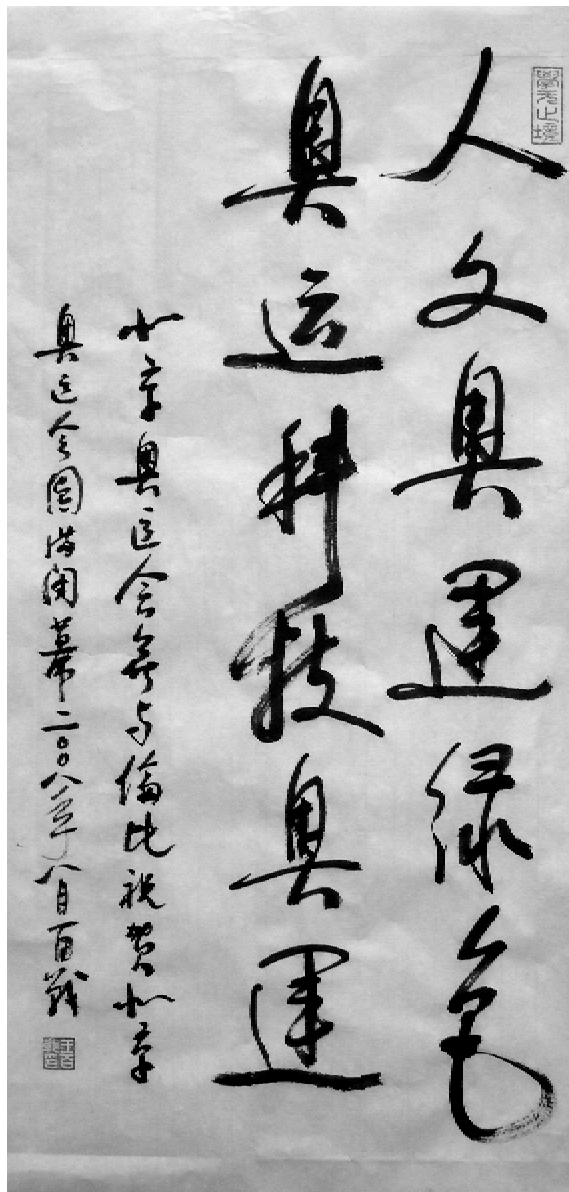 學无止境
人文奥運绿色
奥运科技奥運
北京奥运会無与倫比祝贺北京
奥运会圆满闭幕二〇〇八年八月百战